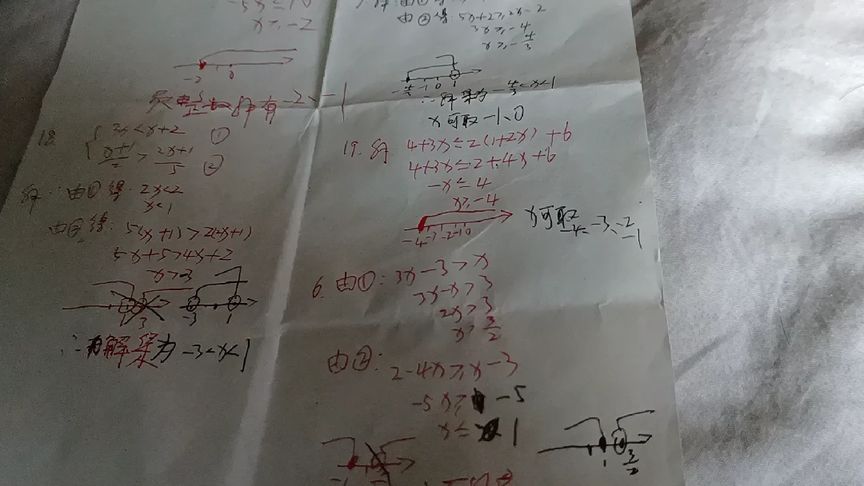 x≥-2
-2 0
-2、-1
18.
3x<x+2 ①
x+1/2 > 2x+1/5 ②
解：由①得：2x<2
x<1
由②得：5(x+1)>2(2x+1)
5x+5>4x+2
x>-3
-3 1
∴解集为 -3<x<1
由②得 5x+2≥2x-2
3x≥-4
x≥-4/3
-4/3 -1 0 1
∴解集为 -4/3≤x<1
x可取-1、0
19. 解 4+3x≤2(1+2x)+6
4+3x≤2+4x+6
-x≤4
x≥-4
-4 -3 -2 -1 0
x可取
-4、-3、-2
-1
6. 由①：3x-3>x
3x-x>3
2x>3
x>3/2
由②：2-4x≥x-3
-5x≥-5
x≤1
1 3/2